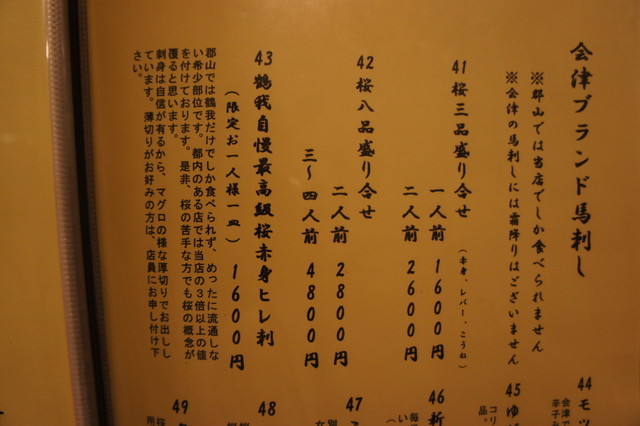 会津ブランド馬刺し
※郡山では当店でしか食べられません
※会津の馬刺しには霜降りはございません
41 桜三品盛り合せ（赤身、レバー、こうね）
一人前 1600円
二人前 2600円
42 桜八品盛り合せ
二人前 2800円
三〜四人前 4800円
43 鶴我自慢最高級桜赤身ヒレ刺
（限定お一人様一皿） 1600円
郡山では鶴我だけでしか食べられず、めったに流通しな
い希少部位です。都内のある店では当店の3倍以上の値
を付けております。是非、桜の苦手な方でも桜の概念が
覆ると思います。
刺身は自信が有るから、マグロの様な厚切りでお出しし
ています。薄切りがお好みの方は、店員にお申し付け下
さい。
44 モツ
会津で
辛子み
45 ゆ
コリ
品。
46 新
毎
い
47
別
在
48
49